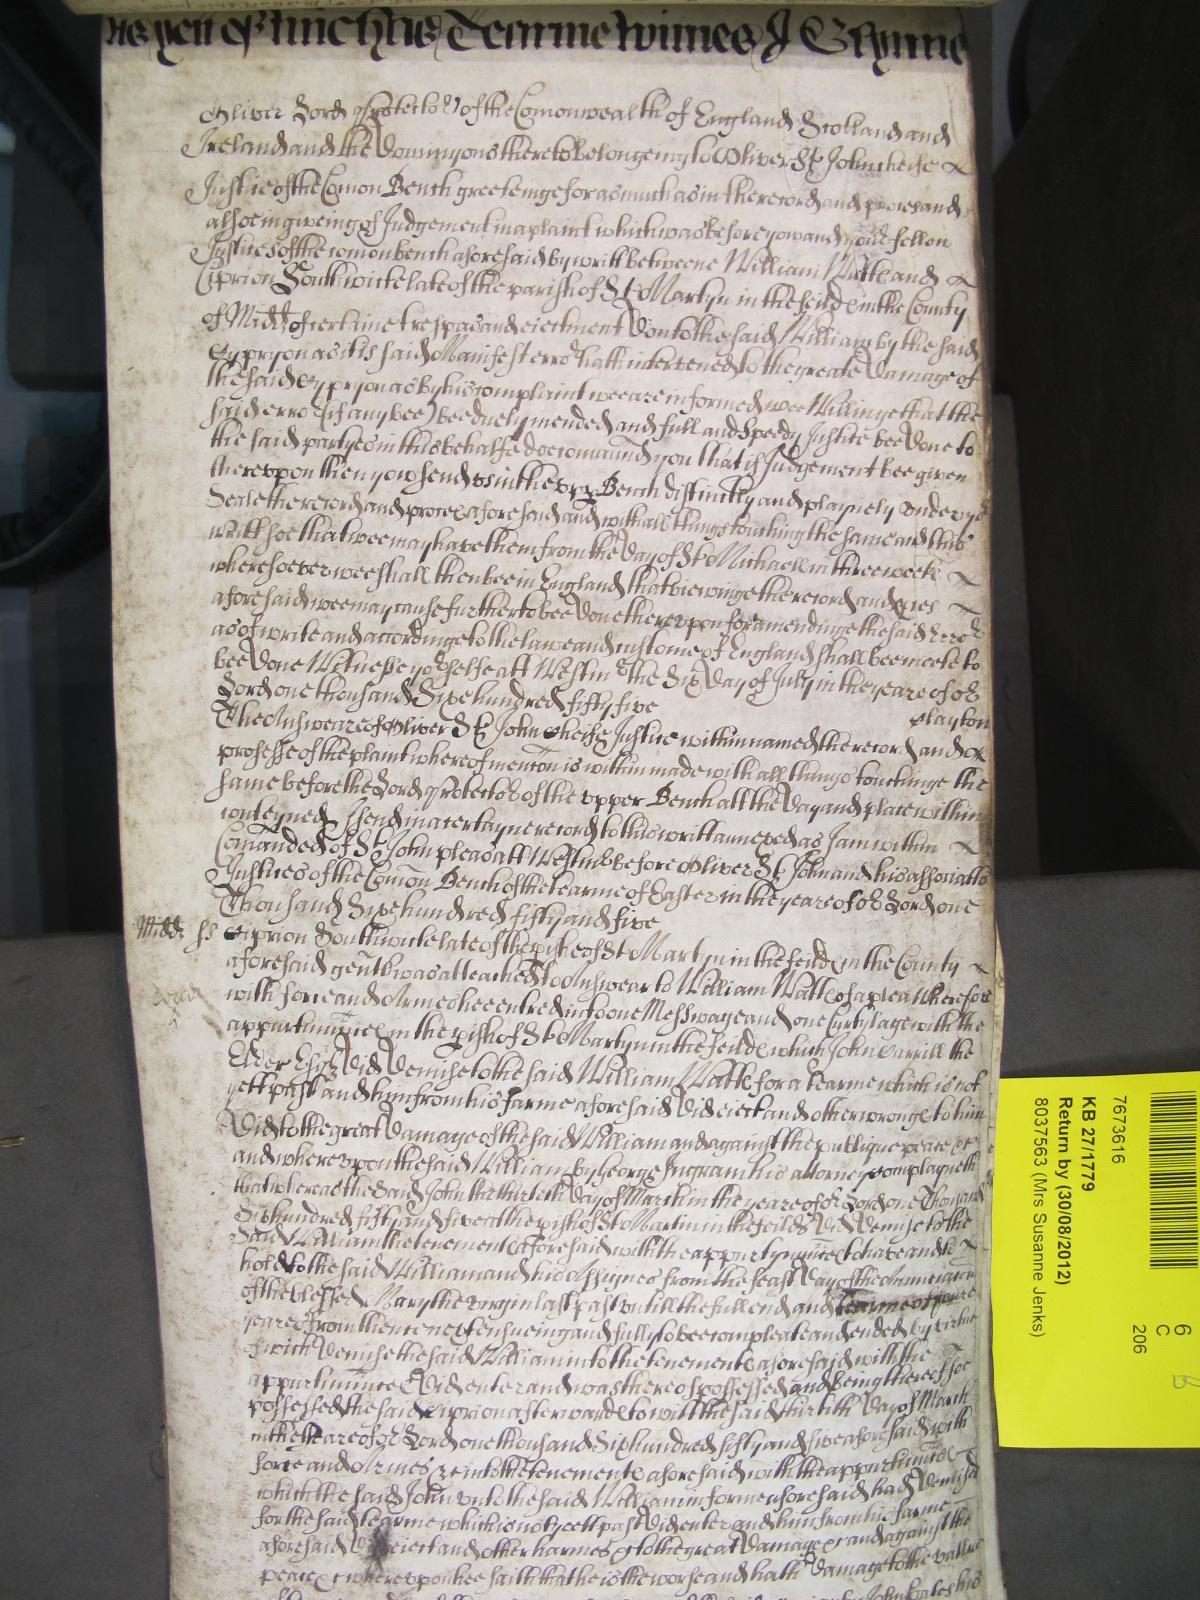 yett of Michas Tearme witnes J Glynne
Oliver Lord Protector of the Comonwealth of England Scotland and
Ireland and the Dominyons thereto belongeing to Oliver St John cheife
Justice of the Comon Bench greeteinge forasmuch as in the record and proces and
alsoe in giveing of Judgement in a plaint which was before yow and your fellow
Justices of the comon bench aforesaid by writt betweene William Watle and
Ciprion Southwicke late of the parish of St Martyn in the feilde in the County
of Midd of certaine trespas and eiectment Don to the said William by the said
Cypryon as it is said Manifest error hath intervened to the greate Damage of
the said Cypryon as by his complaint wee are informed wee Willinge that the
said error (if any bee) bee duely mended and full and speedy Justice bee Done to
the said partyes in this behalfe doe comaund you that if Judgement bee given
therevpon then yow send vs in the vpp Bench distinctly and playnely vnder yor
Seale the record and proces aforesaid and with all things touching the same and this
writt soe that wee may have them from the Day of St Michaell in three weeks
wheresoever wee shall then bee in England that viewinge the record and proces
aforesaid wee may cause further to bee Done therevpon for amendinge the said error
as of write and accordinge to the lawe and custome of England shall bee meete to
bee Done Witnesse yor selfe att Westmr the Six Day of July in the yeare of or
Lord one thousand Sixe hundred fifty five
Clayton
The Answeare of Oliver St John Cheife Justice within named the record and
processe of the plaint whereof mention is within made with all things touchinge the
same before the Lord Protector of the vpper Bench att the Day and place within
conteyned I send in a certayne record to this writt annexed as I am within
Comanded Ol St John pleas att Westmr before Oliver St John and his associatts
Justices of the Comon Bench of the tearme of Easter in the yeare of or Lord one
Thousand Sixe hundred fifty and five
Midd ss Ciprion Southwicke late of the pishe of St Martyn in the feilde in the County
aforesaid gent was attached to Answear to William Watle of a plea Wherefore
with force and Armes hee entred into one Messwage and one Curtylage with the
appurtinnces in the pish of St Martyn in the feilde which John the
Elder Esqr Did Demise to the said William Watle for a tearme which is not
yett past and him from his farme aforesaid Did eiect and other wronge to him
Did to the great Damage of the said William and against the publique peace &c
and wherevpon the said William by George Ingram his attorney complayneth
that whereas the said John the Day of March in the yeare of or Lord one Thousand
Six hundred fifty and five att the pish of St Martin in the feildes Did Demise to the
said William the tenemente aforesaid with the appurtynnces to have and to
hold to the said William and his Assignes from the feast Day of the Annunciacon
of the blessed Mary the virgin last past vntill the full end and tearme of
yeares from thence next ensueing and fully to bee compleate and ended by virtue
of wich Demise the said William into the tenemente aforesaid with the
appurtinnces Did enter and was thereof possessed and being thereof soe
possessed the said Cyprion afterwards to witt the said Day of March
in the yeare of or Lord one thousand Six hundred fifty and five aforesaid with
force and Armes &c into the tenemente aforesaid with the appurtinnces
which the said John vnto the said William in forme aforesaid had Demised
for the said tearme which is not yett past Did enter and him from his farme
aforesaid Did eiect and other harmes &c to the great Damage &c and against the
peace &c wherevpon hee saith that he is the worse and hath Damage to the vallue
7673616
KB 27/1779
Return by (30/08/2012)
8037563 (Mrs Susanne Jenks)
6
C
206